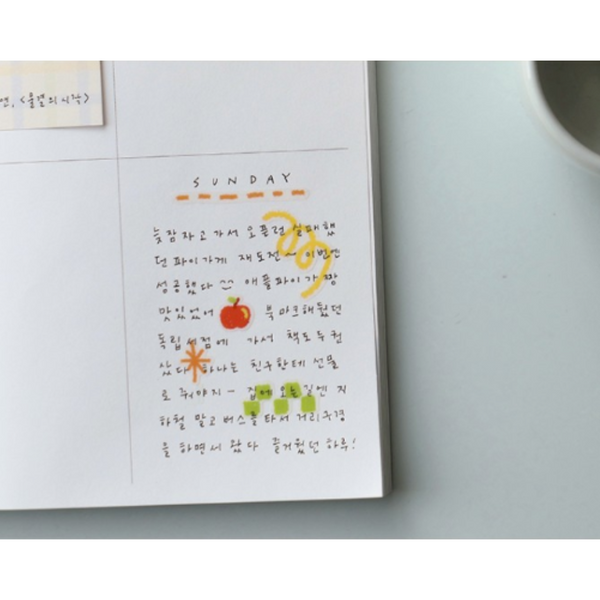 연, <물결의 시작>
SUNDAY
늦잠 자고 가서 오픈런 실패했
던 파이가게 재도전~ 이번엔
성공했다 애플파이가 짱
맛있었어 북마크해뒀던
독립서점에 가서 책도 두 권
샀다 하나는 친구한테 선물
로 줘야지- 집에 오는 길엔 지
하철 말고 버스를 타서 거리구경
을 하면서 왔다 즐거웠던 하루!